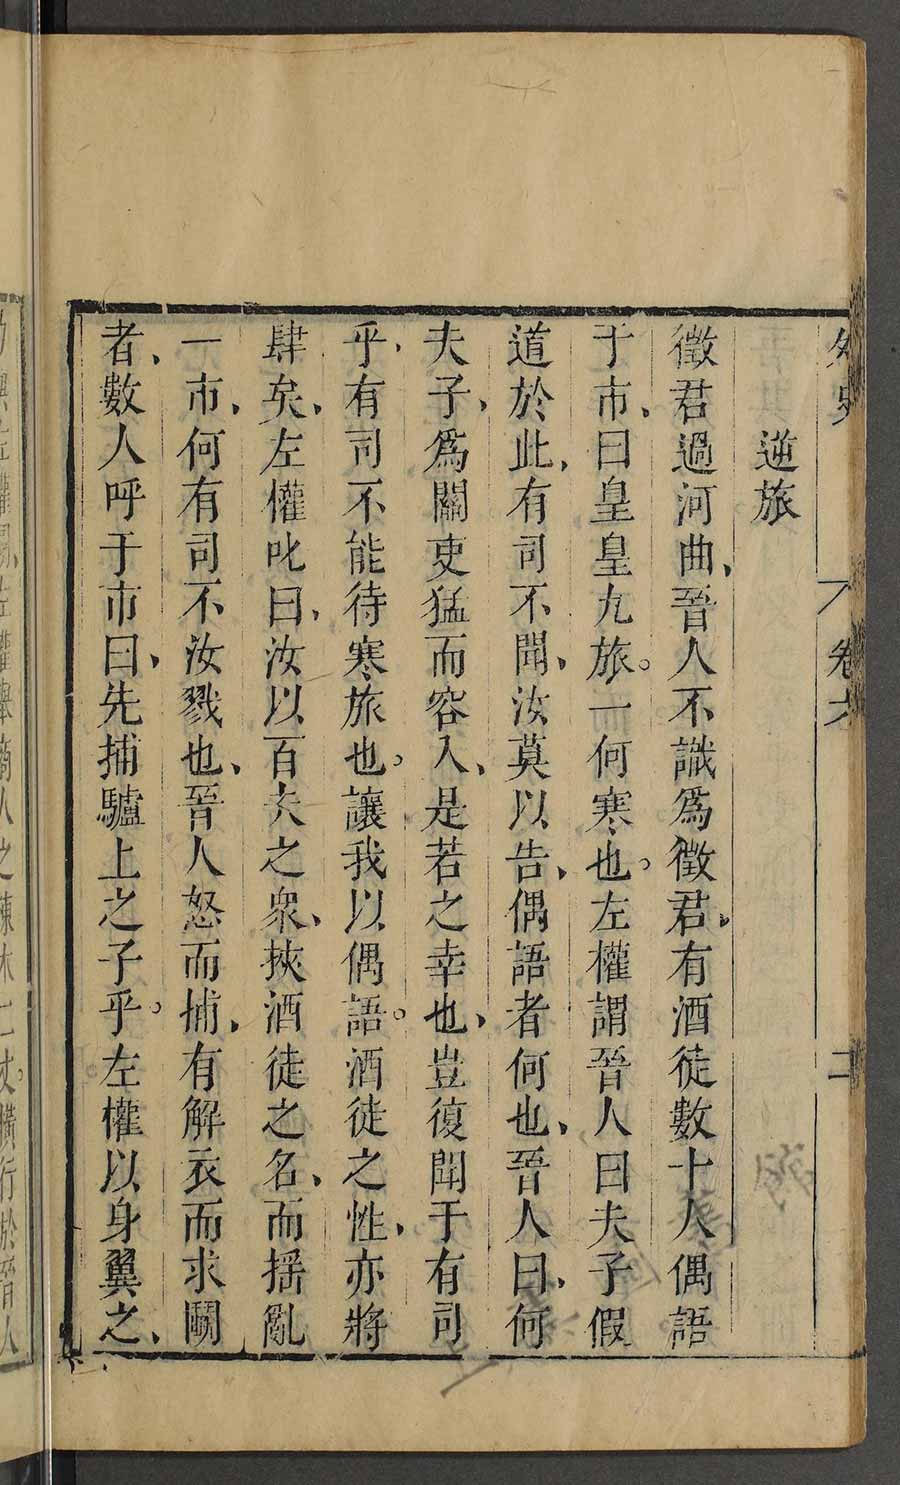 外史
卷六
二
逆旅
徵君過河曲、晉人不識爲徵君、有酒徒數十人偶語
于市、曰皇皇九旅。一何寒也。左權謂晉人曰夫子假
道於此、有司不聞、汝莫以告、偶語者何也、晉人曰、何
夫子、爲關吏猛而容人、是若之幸也、豈復聞于有司
乎、有司不能待寒旅也。讓我以偶語。酒徒之性、亦將
肆矣、左權叱曰、汝以百夫之衆、挾酒徒之名、而揺亂
一市、何有司不汝戮也、晉人怒而捕、有解衣而求鬭
者、數人呼于市曰、先捕驢上之子乎。左權以身翼之、